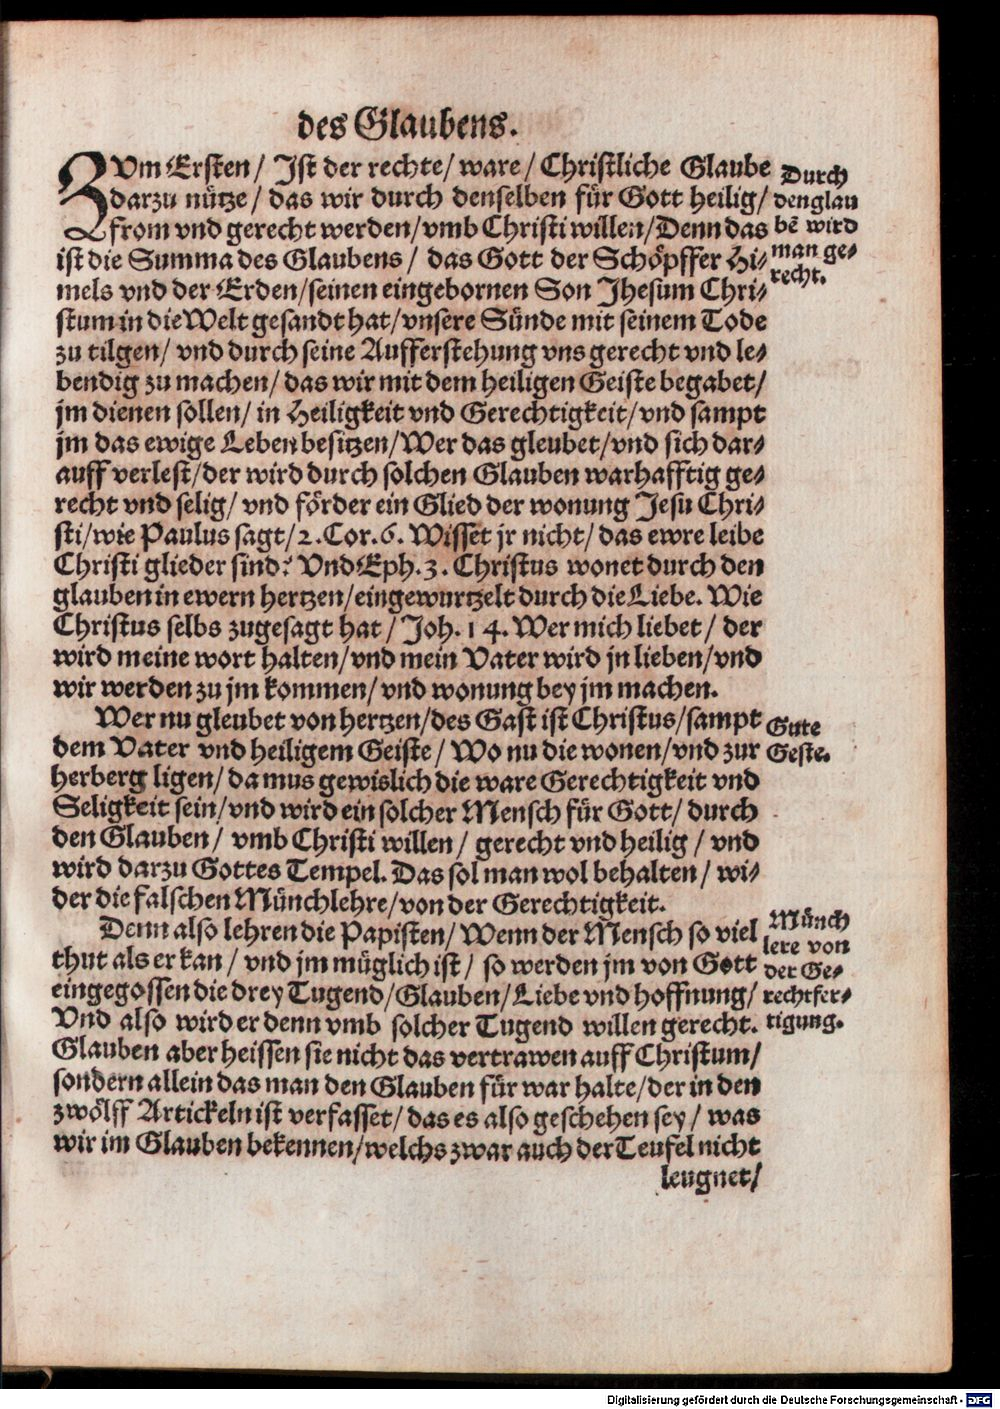 des Glaubens.
ZVm Ersten / Jst der rechte / ware / Christliche Glaube
darzu nütze / das wir durch denselben für Gott heilig /
from vnd gerecht werden / vmb Christi willen / Denn das
ist die Summa des Glaubens / das Gott der Schöpffer Hi-
mels vnd der Erden / seinen eingebornen Son Jhesum Chri-
stum in die Welt gesandt hat / vnsere Sünde mit seinem Tode
zu tilgen / vnd durch seine Aufferstehung vns gerecht vnd le-
bendig zu machen / das wir mit dem heiligen Geiste begabet /
jm dienen sollen / in Heiligkeit vnd Gerechtigkeit / vnd sampt
jm das ewige Leben besitzen / Wer das gleubet / vnd sich dar-
auff verlest / der wird durch solchen Glauben warhafftig ge-
recht vnd selig / vnd förder ein Glied der wonung Jesu Chri-
sti / wie Paulus sagt / 2. Cor. 6. Wisset jr nicht / das ewre leibe
Christi glieder sind? Vnd Eph. 3. Christus wonet durch den
glauben in ewern hertzen / eingewurtzelt durch die Liebe. Wie
Christus selbs zugesagt hat / Joh. 14. Wer mich liebet / der
wird meine wort halten / vnd mein Vater wird jn lieben / vnd
wir werden zu jm kommen / vnd wonung bey jm machen.
Wer nu gleubet von hertzen / des Gast ist Christus / sampt
dem Vater vnd heiligem Geiste / Wo nu die wonen / vnd zur
herberg ligen / da mus gewislich die ware Gerechtigkeit vnd
Seligkeit sein / vnd wird ein solcher Mensch für Gott / durch
den Glauben / vmb Christi willen / gerecht vnd heilig / vnd
wird darzu Gottes Tempel. Das sol man wol behalten / wi-
der die falschen Münchlehre / von der Gerechtigkeit.
Denn also lehren die Papisten / Wenn der Mensch so viel
thut als er kan / vnd jm müglich ist / so werden jm von Gott
eingegossen die drey Tugend / Glauben / Liebe vnd hoffnung /
Vnd also wird er denn vmb solcher Tugend willen gerecht.
Glauben aber heissen sie nicht das vertrawen auff Christum /
sondern allein das man den Glauben für war halte / der in den
zwölff Artickeln ist verfasset / das es also geschehen sey / was
wir im Glauben bekennen / welchs zwar auch der Teufel nicht
leugnet /
Durch
den glau
bē wird
man ge-
recht.
Gute
Geste.
Münch
lere von
der Ge-
rechtfer-
tigung.
Digitalisierung gefördert durch die Deutsche Forschungsgemeinschaft - DFG